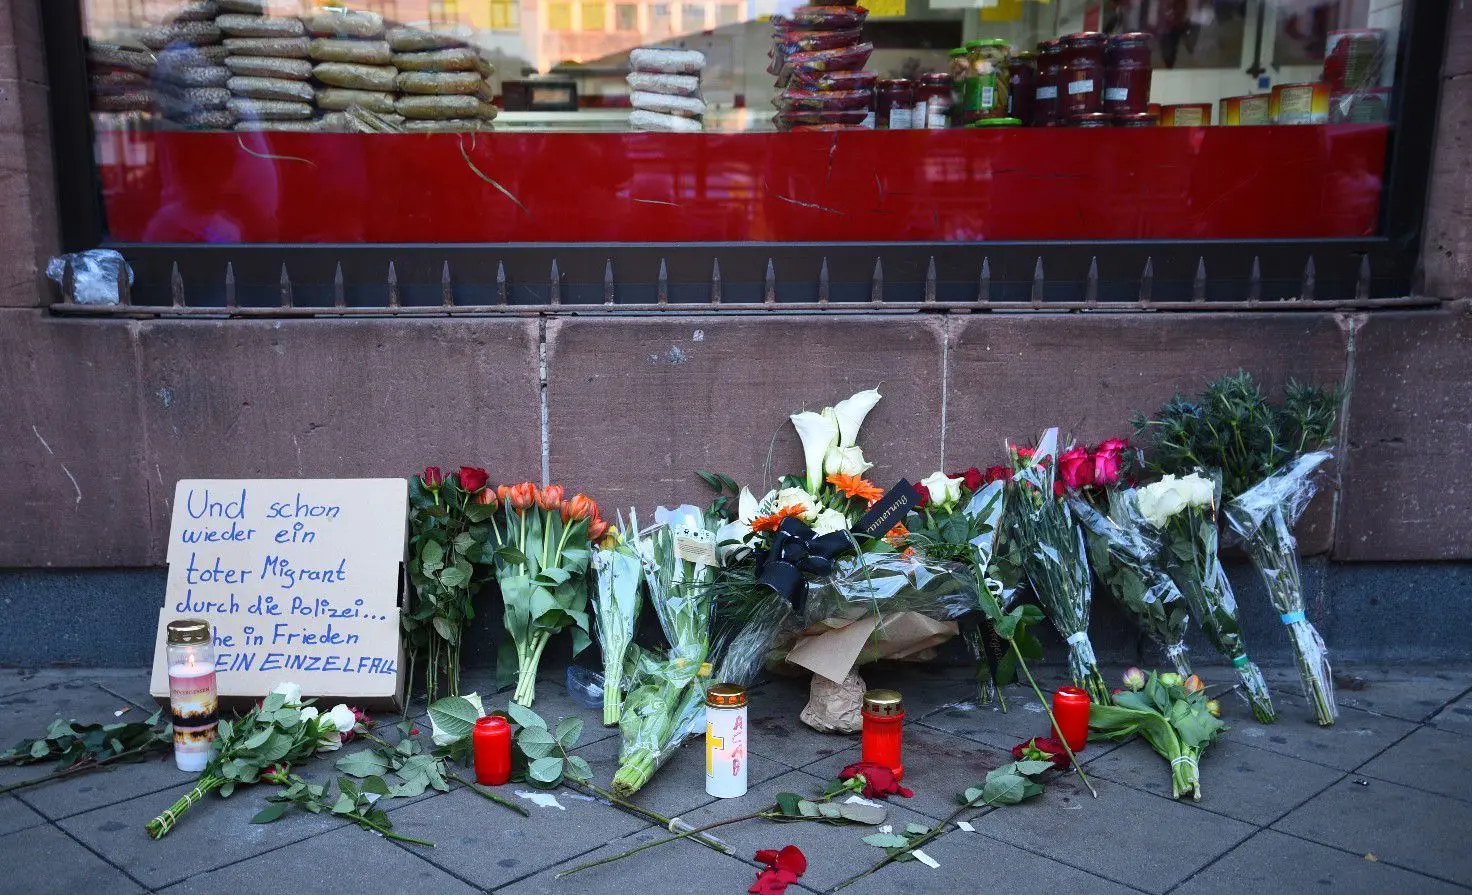 Und schon
wieder ein
toter Migrant
durch die Polizei...
he in Frieden
EIN EINZELFALL